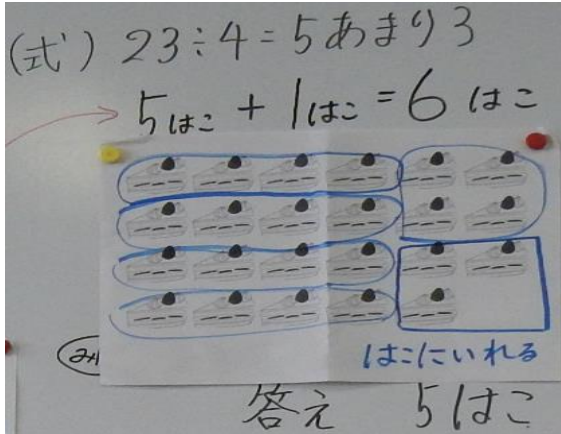 (式) 23÷4=5あまり3
5はこ+1はこ=6はこ
はこにいれる
答え 5はこ